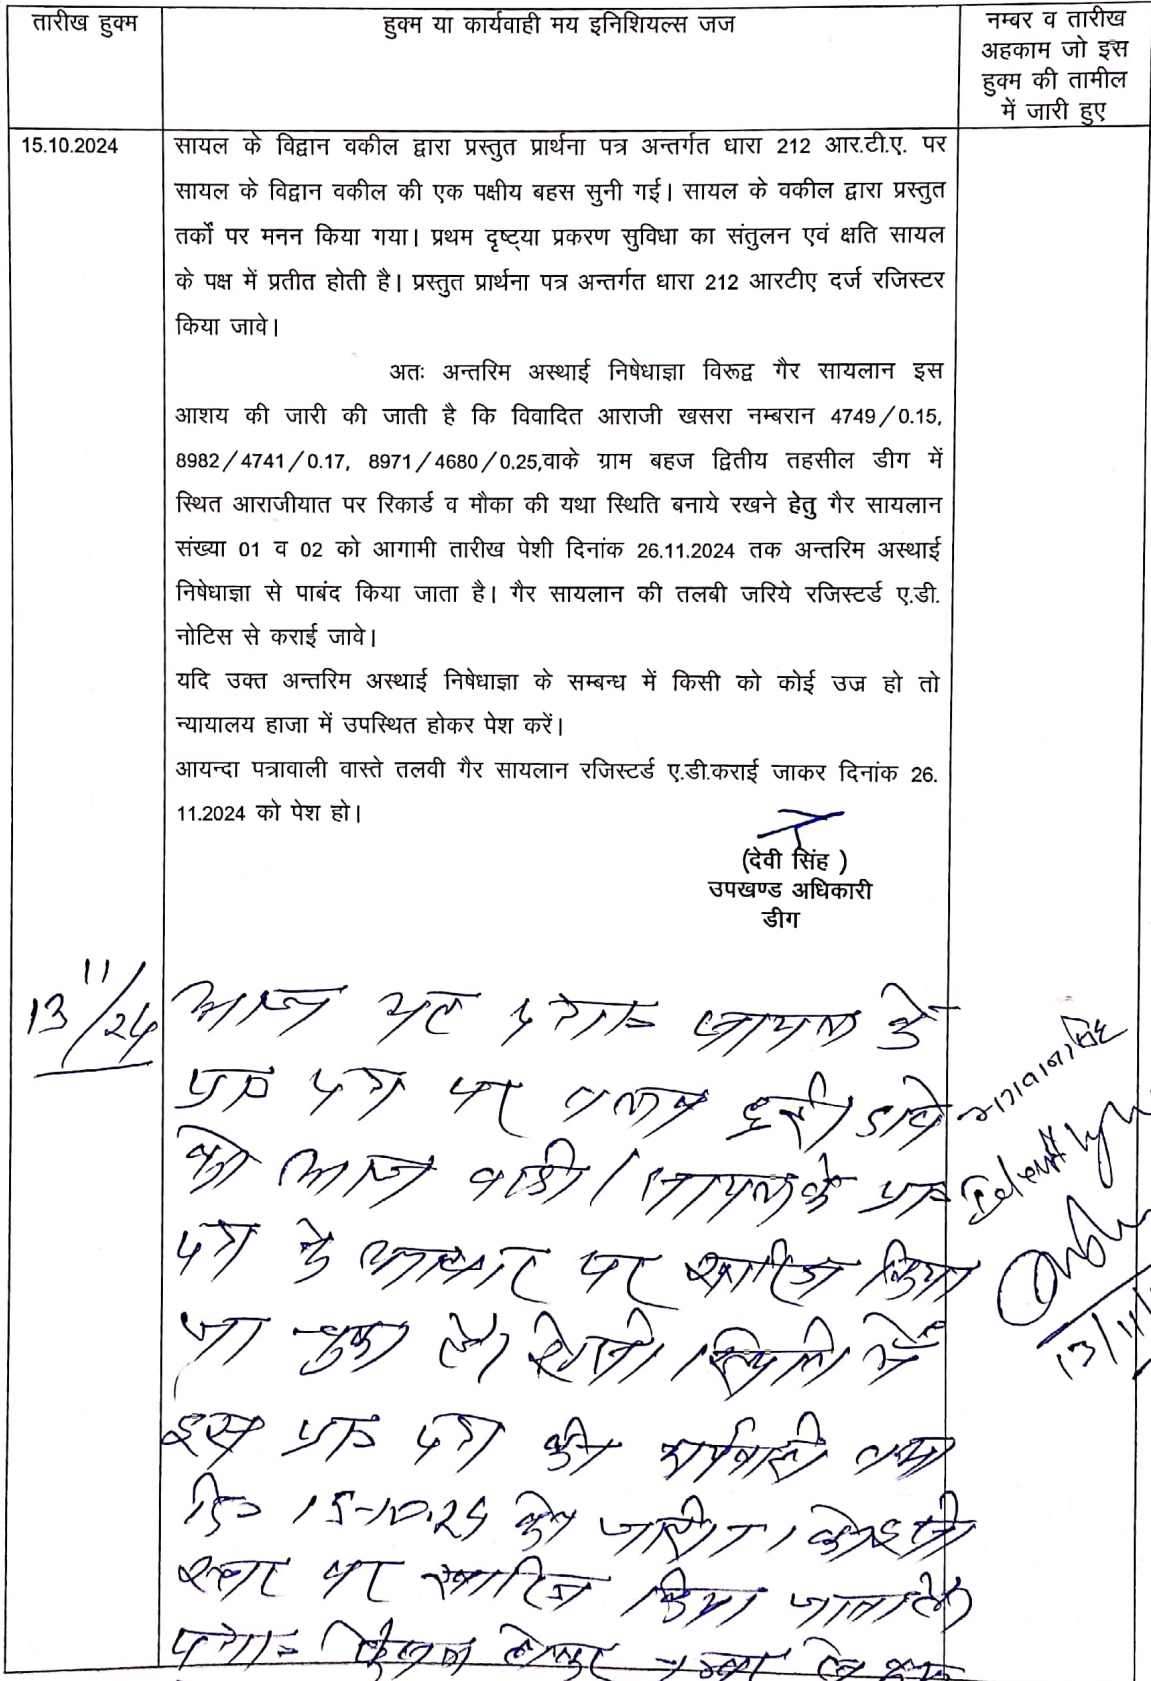 तारीख हुक्म
हुक्म या कार्यवाही मय इनिशियल्स जज
नम्बर व तारीख
अहकाम जो इस
हुक्म की तामील
में जारी हुए
15.10.2024
सायल के विद्वान वकील द्वारा प्रस्तुत प्रार्थना पत्र अन्तर्गत धारा 212 आर.टी.ए. पर
सायल के विद्वान वकील की एक पक्षीय बहस सुनी गई। सायल के वकील द्वारा प्रस्तुत
तर्कों पर मनन किया गया। प्रथम दृष्ट्या प्रकरण सुविधा का संतुलन एवं क्षति सायल
के पक्ष में प्रतीत होती है। प्रस्तुत प्रार्थना पत्र अन्तर्गत धारा 212 आरटीए दर्ज रजिस्टर
किया जावे।
अतः अन्तरिम अस्थाई निषेधाज्ञा विरूद्व गैर सायलान इस
आशय की जारी की जाती है कि विवादित आराजी खसरा नम्बरान 4749/0.15,
8982/4741/0.17, 8971/4680/0.25,वाके ग्राम बहज द्वितीय तहसील डीग में
स्थित आराजीयात पर रिकार्ड व मौका की यथा स्थिति बनाये रखने हेतु गैर सायलान
संख्या 01 व 02 को आगामी तारीख पेशी दिनांक 26.11.2024 तक अन्तरिम अस्थाई
निषेधाज्ञा से पाबंद किया जाता है। गैर सायलान की तलबी जरिये रजिस्टर्ड ए.डी.
नोटिस से कराई जावे।
यदि उक्त अन्तरिम अस्थाई निषेधाज्ञा के सम्बन्ध में किसी को कोई उज्र हो तो
न्यायालय हाजा में उपस्थित होकर पेश करें।
आयन्दा पत्रावाली वास्ते तलवी गैर सायलान रजिस्टर्ड ए.डी.कराई जाकर दिनांक 26.
11.2024 को पेश हो।
(देवी सिंह )
उपखण्ड अधिकारी
डीग
13/11/24
आज यह पत्रा० सायल के
प्रा० पत्र पर तलब हुई। दावे
को आज वादी / सायल के प्रा०
पत्र के आधार पर खारिज किया
जा चुका है। ऐसी स्थिति में
इस प्रा० पत्र की कार्यवाही तथा
दि० 15-10.24 को जारी को इसी
स्तर पर खारिज किया जाता है।
पत्रा० फैसल होकर
13/11